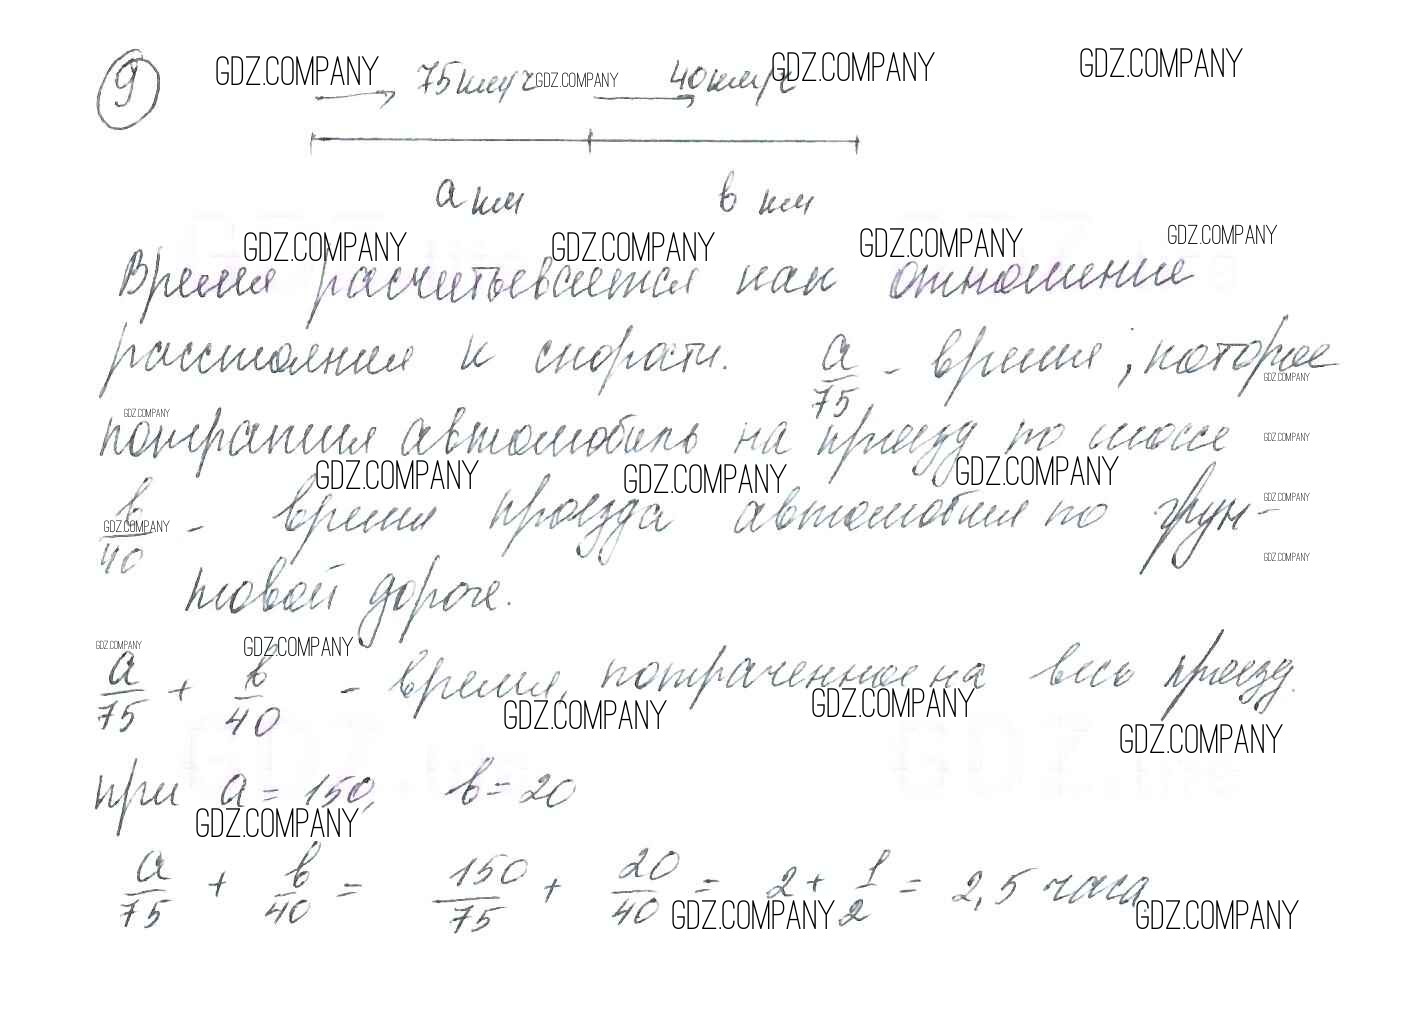 9 GDZ.COMPANY 75км/ч GDZ.COMPANY 40км/ч GDZ.COMPANY GDZ.COMPANY
а км в км
GDZ.COMPANY GDZ.COMPANY GDZ.COMPANY GDZ.COMPANY
Время расчитывается как отношение
расстояния к скорости. а/75 - время, которое
GDZ.COMPANY GDZ.COMPANY
потратил автомобиль на проезд по шоссе GDZ.COMPANY
GDZ.COMPANY GDZ.COMPANY GDZ.COMPANY
в/40 - время проезда автомобиля по грун-
GDZ.COMPANY GDZ.COMPANY GDZ.COMPANY
товой дороге.
GDZ.COMPANY GDZ.COMPANY
а/75 + в/40 - время, потраченное на весь проезд.
GDZ.COMPANY GDZ.COMPANY GDZ.COMPANY
при а = 150, в = 20
GDZ.COMPANY
а/75 + в/40 = 150/75 + 20/40 = 2 + 1/2 = 2,5 часа
GDZ.COMPANY GDZ.COMPANY